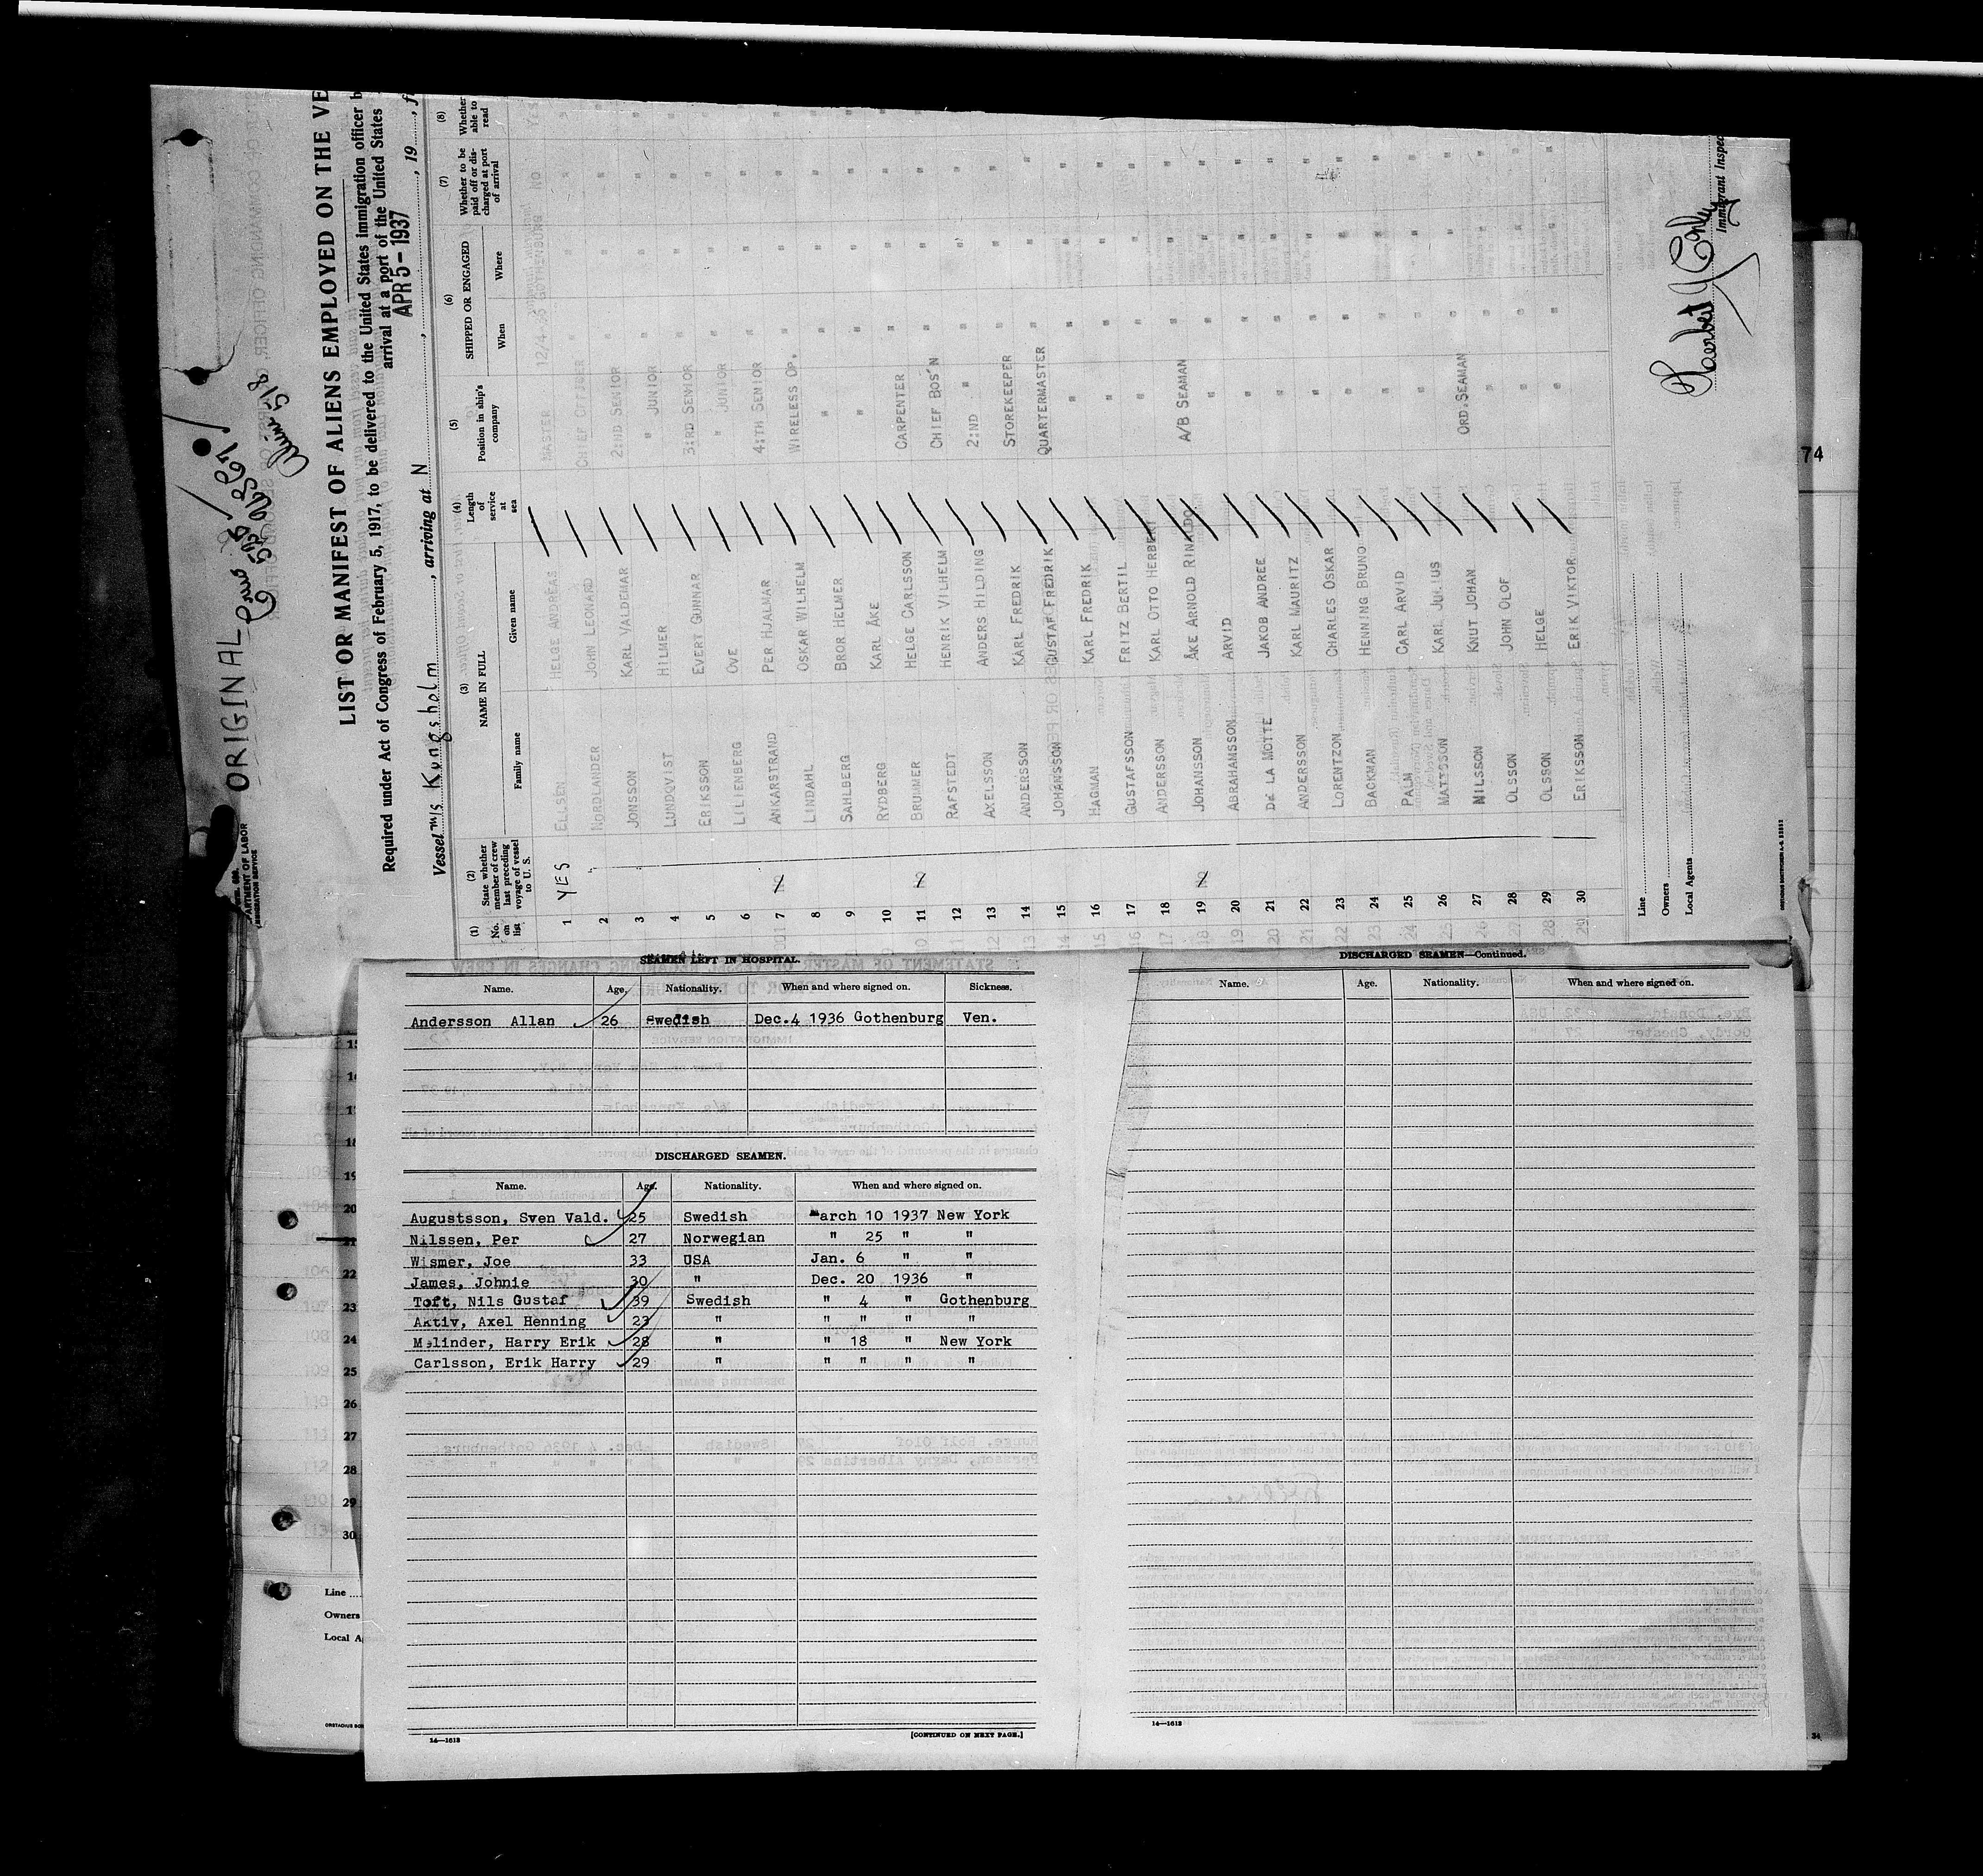 ORIGINAL
LIST OR MANIFEST OF ALIENS EMPLOYED ON THE VE
Required under Act of Congress of February 5, 1917, to be delivered to the United States immigration officer b
arrival at a port of the United States
APR 5 - 1937
Vessel M/S Kungsholm, arriving at N , 19 , f
(1) No. on list (2) State whether member of crew last preceding voyage of vessel to U. S. (3) NAME IN FULL Family name Given name (4) Length of service at sea (5) Position in ship's company (6) SHIPPED OR ENGAGED When Where (7) Whether to be paid off or discharged at port of arrival (8) Whether able to read
1 YES ELSEN HELGE ANDREAS MASTER 12/4-36 GOTHENBURG NO
2 NORDLANDER JOHN LEONARD CHIEF OFFICER " " "
3 JONSSON KARL VALDEMAR 2:ND SENIOR " " "
4 LUNDQVIST HILMER " JUNIOR " " "
5 ERIKSSON EVERT GUNNAR 3:RD SENIOR " " "
6 LILIENBERG OVE " JUNIOR " " "
7 NO ANKARSTRAND PER HJALMAR 4:TH SENIOR " " "
8 LINDAHL OSKAR WILHELM WIRELESS OP. " " "
9 SAHLBERG BROR HELMER " " " "
10 RYDBERG KARL ÅKE " " " "
11 NO BRUMMER HELGE CARLSSON CARPENTER " " "
12 RAFSTEDT HENRIK VILHELM CHIEF BOS'N " " "
13 AXELSSON ANDERS HILDING 2:ND " " " "
14 ANDERSSON KARL FREDRIK STOREKEEPER " " "
15 JOHANSSON GUSTAF FREDRIK QUARTERMASTER " " "
16 HAGMAN KARL FREDRIK " " " "
17 GUSTAFSSON FRITZ BERTIL " " " "
18 ANDERSSON KARL OTTO HERBERT " " " "
19 NO JOHANSSON ÅKE ARNOLD RINALDO A/B SEAMAN " " "
20 ABRAHAMSSON ARVID " " " "
21 DE LA MOTTE JAKOB ANDREE " " " "
22 ANDERSSON KARL MAURITZ " " " "
23 LORENTZON CHARLES OSKAR " " " "
24 BACKMAN HENNING BRUNO " " " "
25 PALM CARL ARVID " " " "
26 MATTSSON KARL JULIUS " " " "
27 NILSSON KNUT JOHAN ORD.SEAMAN " " "
28 OLSSON JOHN OLOF " " " "
29 OLSSON HELGE " " " "
30 ERIKSSON ERIK VIKTOR " " " "
Line
Owners
Local Agents
Immigrant Inspec
74
SEAMEN LEFT IN HOSPITAL.
Name. Age. Nationality. When and where signed on. Sickness.
Andersson Allan 26 Swedish Dec.4 1936 Gothenburg Ven.
DISCHARGED SEAMEN.
Name. Age. Nationality. When and where signed on.
Augustsson, Sven Vald. 25 Swedish March 10 1937 New York
Nilssen, Per 27 Norwegian " 25 " "
Wismer, Joe 33 USA Jan. 6 " "
James, Johnie 30 " Dec. 20 1936 "
Toft, Nils Gustaf 39 Swedish " 4 " Gothenburg
Aktiv, Axel Henning 23 " " " " "
Melinder, Harry Erik 28 " " 18 " New York
Carlsson, Erik Harry 29 " " " " "
14—1612
[CONTINUED ON NEXT PAGE.]
DISCHARGED SEAMEN—Continued.
Name. Age. Nationality. When and where signed on.
14—1612
15
16
17
18
19
20
21
22
23
24
25
26
27
28
29
30
Line
Owners
Local A